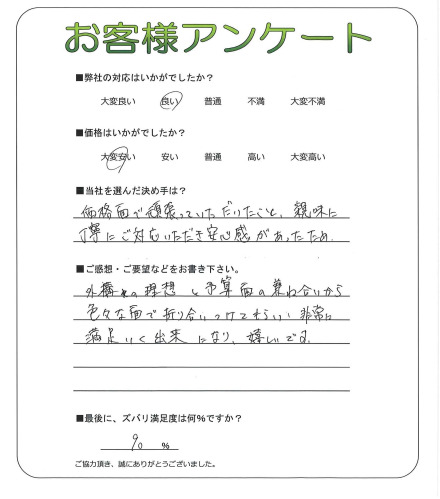 お客様アンケート
■弊社の対応はいかがでしたか？
大変良い 良い 普通 不満 大変不満
■価格はいかがでしたか？
大変安い 安い 普通 高い 大変高い
■当社を選んだ決め手は？
価格面で頑張っていただけたこと、親味に
丁寧にご対応いただき安心感があったため.
■ご感想・ご要望などをお書き下さい。
外構の理想と予算面の兼ね合いから
色々な面で折り合いつけてもらい非常に
満足いく出来になり、嬉しいです
■最後に、ズバリ満足度は何％ですか？
90 ％
ご協力頂き、誠にありがとうございました。